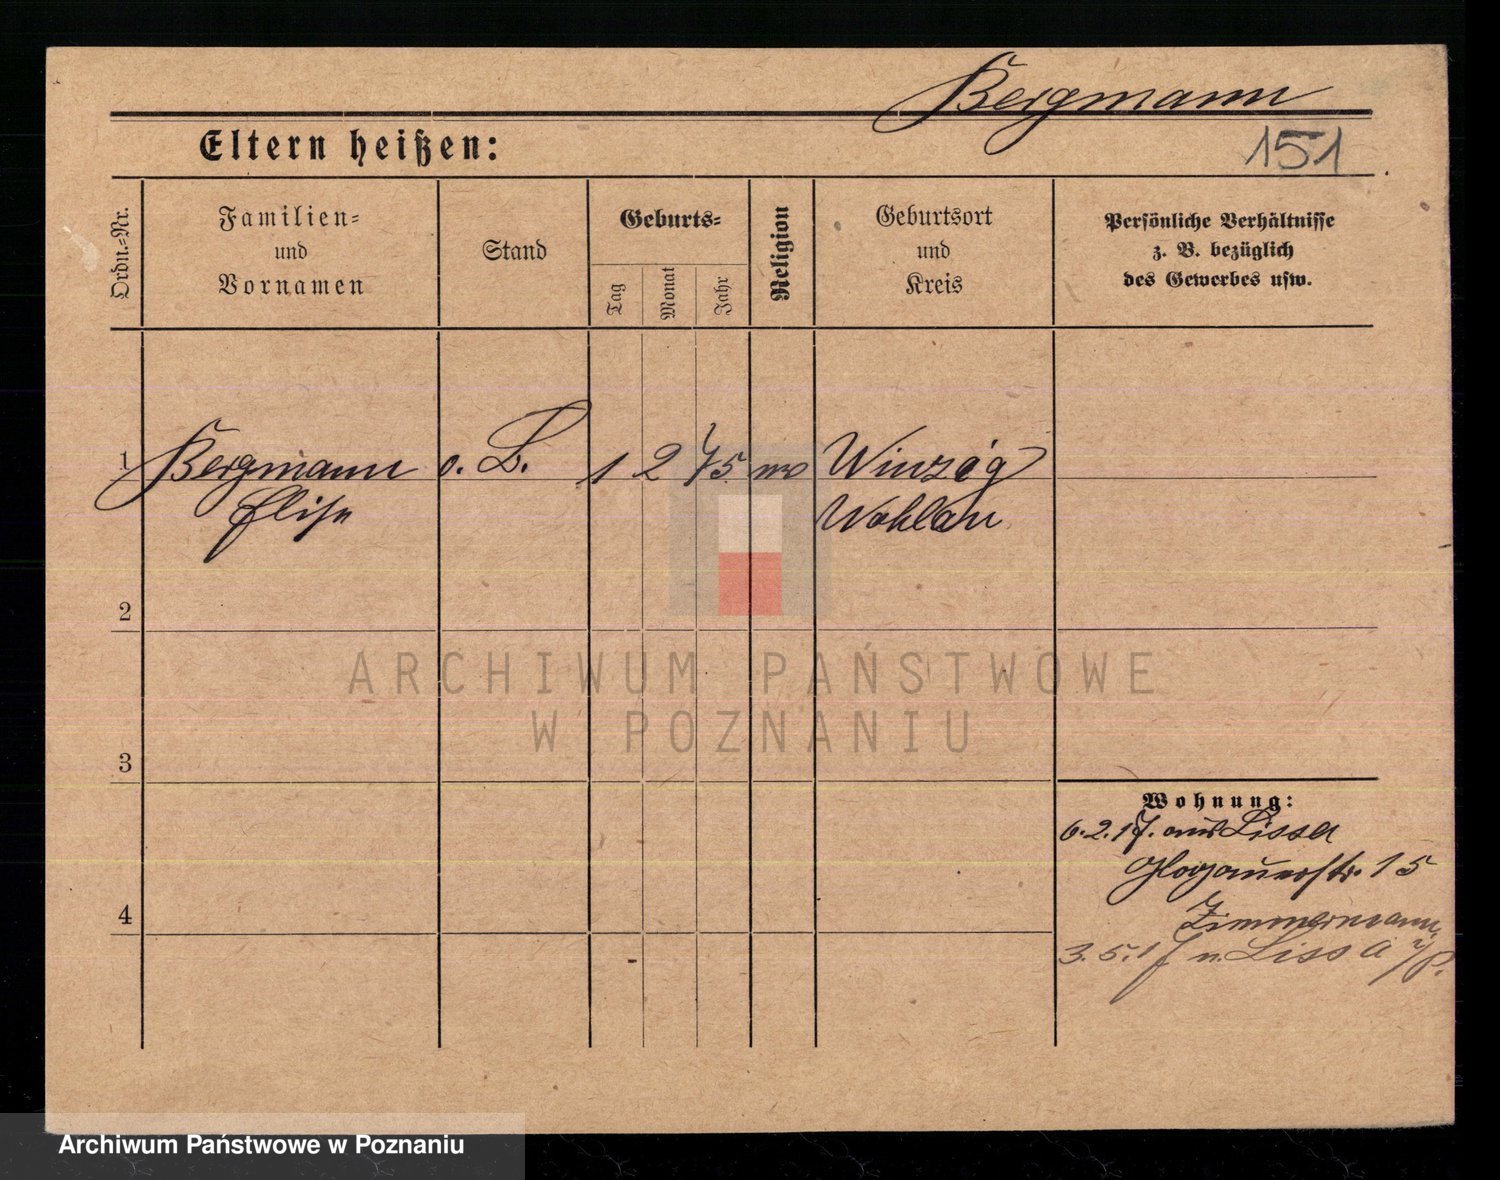 Bergmann
Eltern heißen:
151
Ordn.-Nr.
Familien-
und
Vornamen
Stand
Geburts-
Tag
Monat
Jahr
Religion
Geburtsort
und
Kreis
Persönliche Verhältnisse
z. B. bezüglich
des Gewerbes usw.
1 Bergmann o. B. 1 2 75 Winzig
Elise Wohlau
2
3
4
Wohnung:
6.2.17. aus Lissa
Glogauerstr. 15
Zimmermann
3.5.17 n. Lissa i/P.
ARCHIWUM PAŃSTWOWE
W POZNANIU
Archiwum Państwowe w Poznaniu